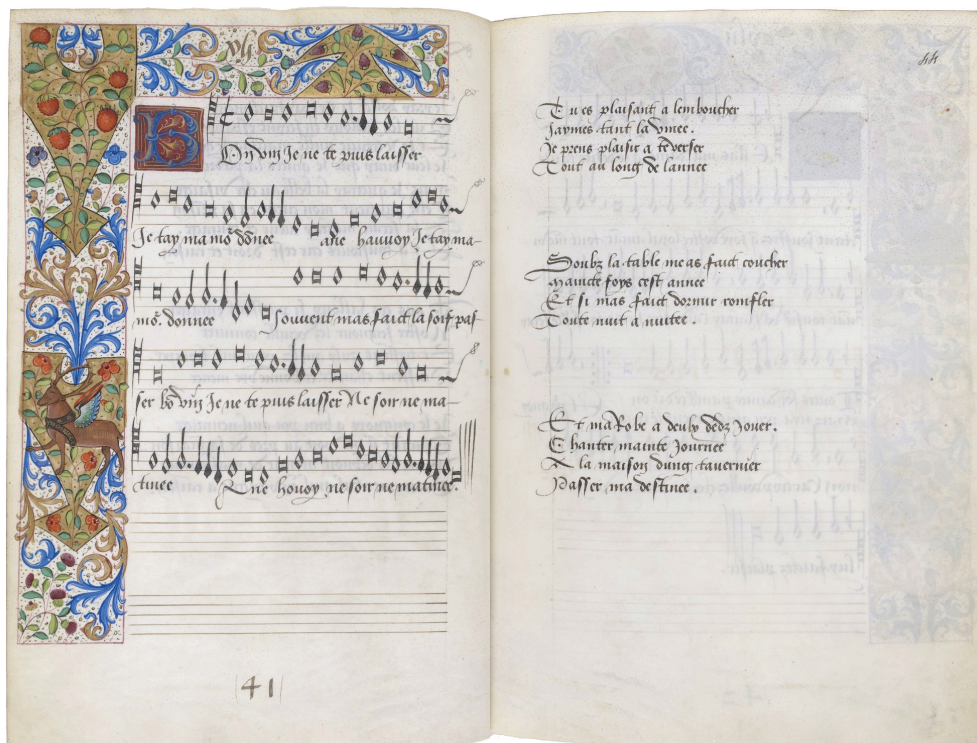 xlj
Bon vin Je ne te puis laisser
Je tay mamo᷑ donnee ane hauvoy Je tay ma-
mo᷑. donnee Souvent mas faict la soif pas
ser bō vin Je ne te puis laisser Ne soir ne ma-
tinee Ane hovoy ne soir ne matinee.
41
44
Tu es plaisant a lemboucher
Jaymes tant la vinee.
Je prens plaisir a te verser
Tout au long de lannee
Soubz la table me as faict coucher
Mainte foys cest annee
Et si mas faict dormir ronfler
Toute nuit a nuitee.
Et ma Robe a Jouer.
Chanter mainte Journee
A la maison dung tavernier
Passer ma destinee.